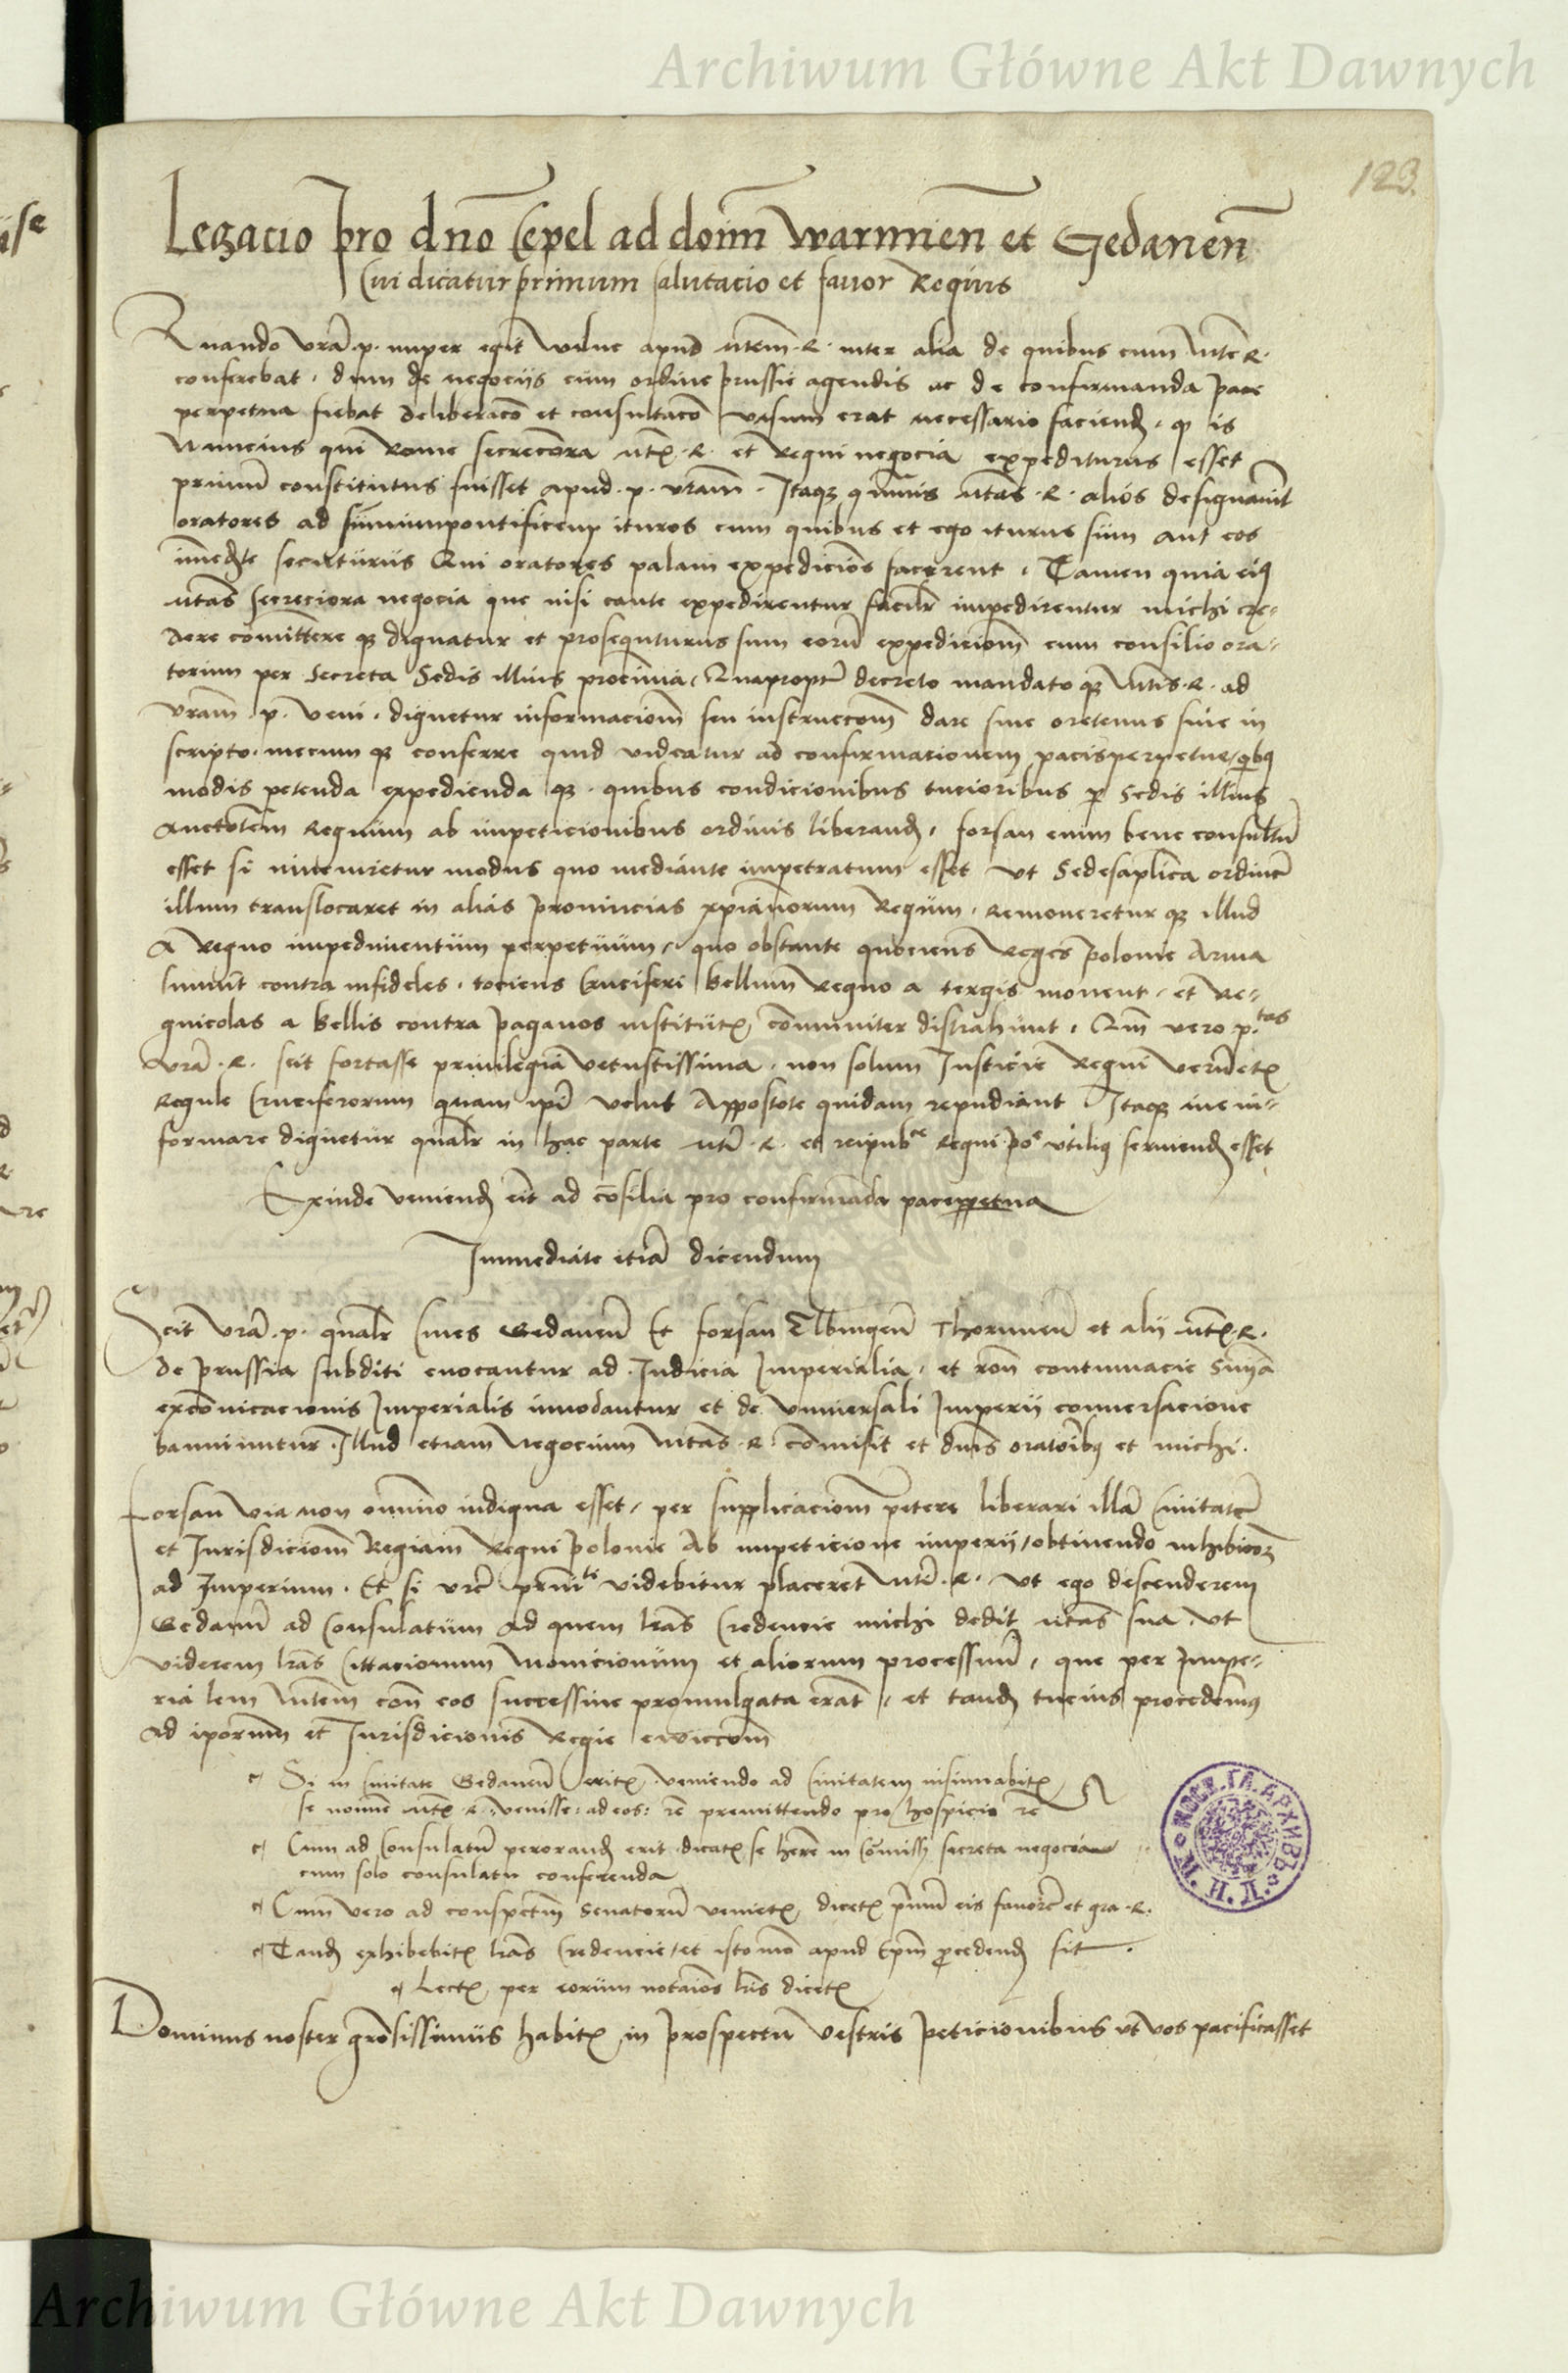 Archiwum Główne Akt Dawnych
123.
Legacio pro dno Cepel ad doim Warmien et Gedanen
Cui dicatur primum salutacio et favor Regius
Quando vra p. nuper egit Vilne apud mtem R. inter alia de quibus cum Mte R.
conferebat, dum de negociis cum ordine prussie agendis ac de confirmanda pace
perpetua fiebat deliberaco et consultaco visum erat necessario faciend, q is
Nuncius qui Rome secreciora mtis R. et Regni negocia expediturus esset
primum constitutus fuisset apud p. vram. Itaq quamvis Mtas R. alios designavit
oratores ad summumpontificem ituros cum quibus et ego iturus sum aut eos
immediate secuturus Qui oratores palam expediciones facerent. Tamen quia eius
Mtas secreciora negocia que nisi caute expedirentur facilr impedirentur michi cre-
dere comittere q dignatur et prosequturus sum eorum expedicionem cum consilio ora-
torum per secreta Sedis illius procinua, Quapropter decreto mandato q Mtis R. ad
vram p. veni. dignetur informacionem seu instruccom dare sive oretenus sive in
scripto. mecum q conferre quid videatur ad confirmacionem pacisperpetue, quibus
modis petenda expedienda q. quibus condicionibus tucioribus p Sedis illius
auctotem Regnum ab impeticionibus ordinis liberand, forsan enim bene consultum
esset si inveniretur modus quo mediante impetratum esset ut Sedesaplica ordinem
illum translocaret in alias provincias xpianorum Regum, Removeretur q illud
a Regno impedimentum perpetuum, quo obstante quociens Reges polonie Arma
sumunt contra infideles, tociens Cruciferi bellum Regno a tergis movent, et Re-
gnicolas a bellis contra paganos institutis communiter distrahunt, Qm vero p.tas
vra R. scit fortasse privilegia vetustissima, non solum Iusticie Regni verum etiam
Regule Cruciferorum quam ipi velut Appostote quidam repudiant Itaq me in-
formare dignetur qualr in hac parte mti R. et reipub ce Regni po e utilius serviend esset
Exinde veniend erit ad consilia pro confirmanda paceperpetua
Immediate etiam dicendum
Scit vra p. qualr Cives Gedanen Et forsan Elbingen Thorunen et alii mtis R.
de prussia subditi evocantur ad Iudicia Imperialia, et ron contumacie Sniam
excomicacionis Imperialis innodantur et de universali Imperii conversacione
banniuntur. Illud etiam Negocium Mtas R. comisit et dnis oratoribus et michi.
Forsan via non omnino indigna esset, per supplicacionem petere liberari illam Civitatem
et Iurisdicionem Regiam Regni polonie Ab impeticione imperii, obtinendo inhibicionem
ad Imperium. Et si vre prnitti videbitur placeret Mti R. ut ego descenderem
Gedanum ad Consulatum Ad quem lras Credencie michi dedit Mtas sua ut
viderem lras Cittacionum Monicionum et aliorum processuum, que per Impe-
rialem Mtem con eos successive promulgata erant, et tand tucius procedemus
ad iporum et Iurisdicionis Regie eviccom
Si in Civitate Gedanen eritis, veniendo ad Civitatem insinuabitis
se nomine mtis R. venisse ad eos: re premittendo pro hospicio re
Cum ad Consulatum perorand erit dicatis se here in Comissis secreta negocia
cum solo consulatu conferenda
Cum vero ad conspectum Senatorum venietis, dicetis primum eis favorem et gra R.
Tand exhibebitis lras Credencie, et isto modo apud Epm procedend sit.
Lectis per eorum notarios lris dicetis
Dominus noster graosissimus habitis in prospectu vestris peticionibus ut vos pacificasset
Archiwum Główne Akt Dawnych